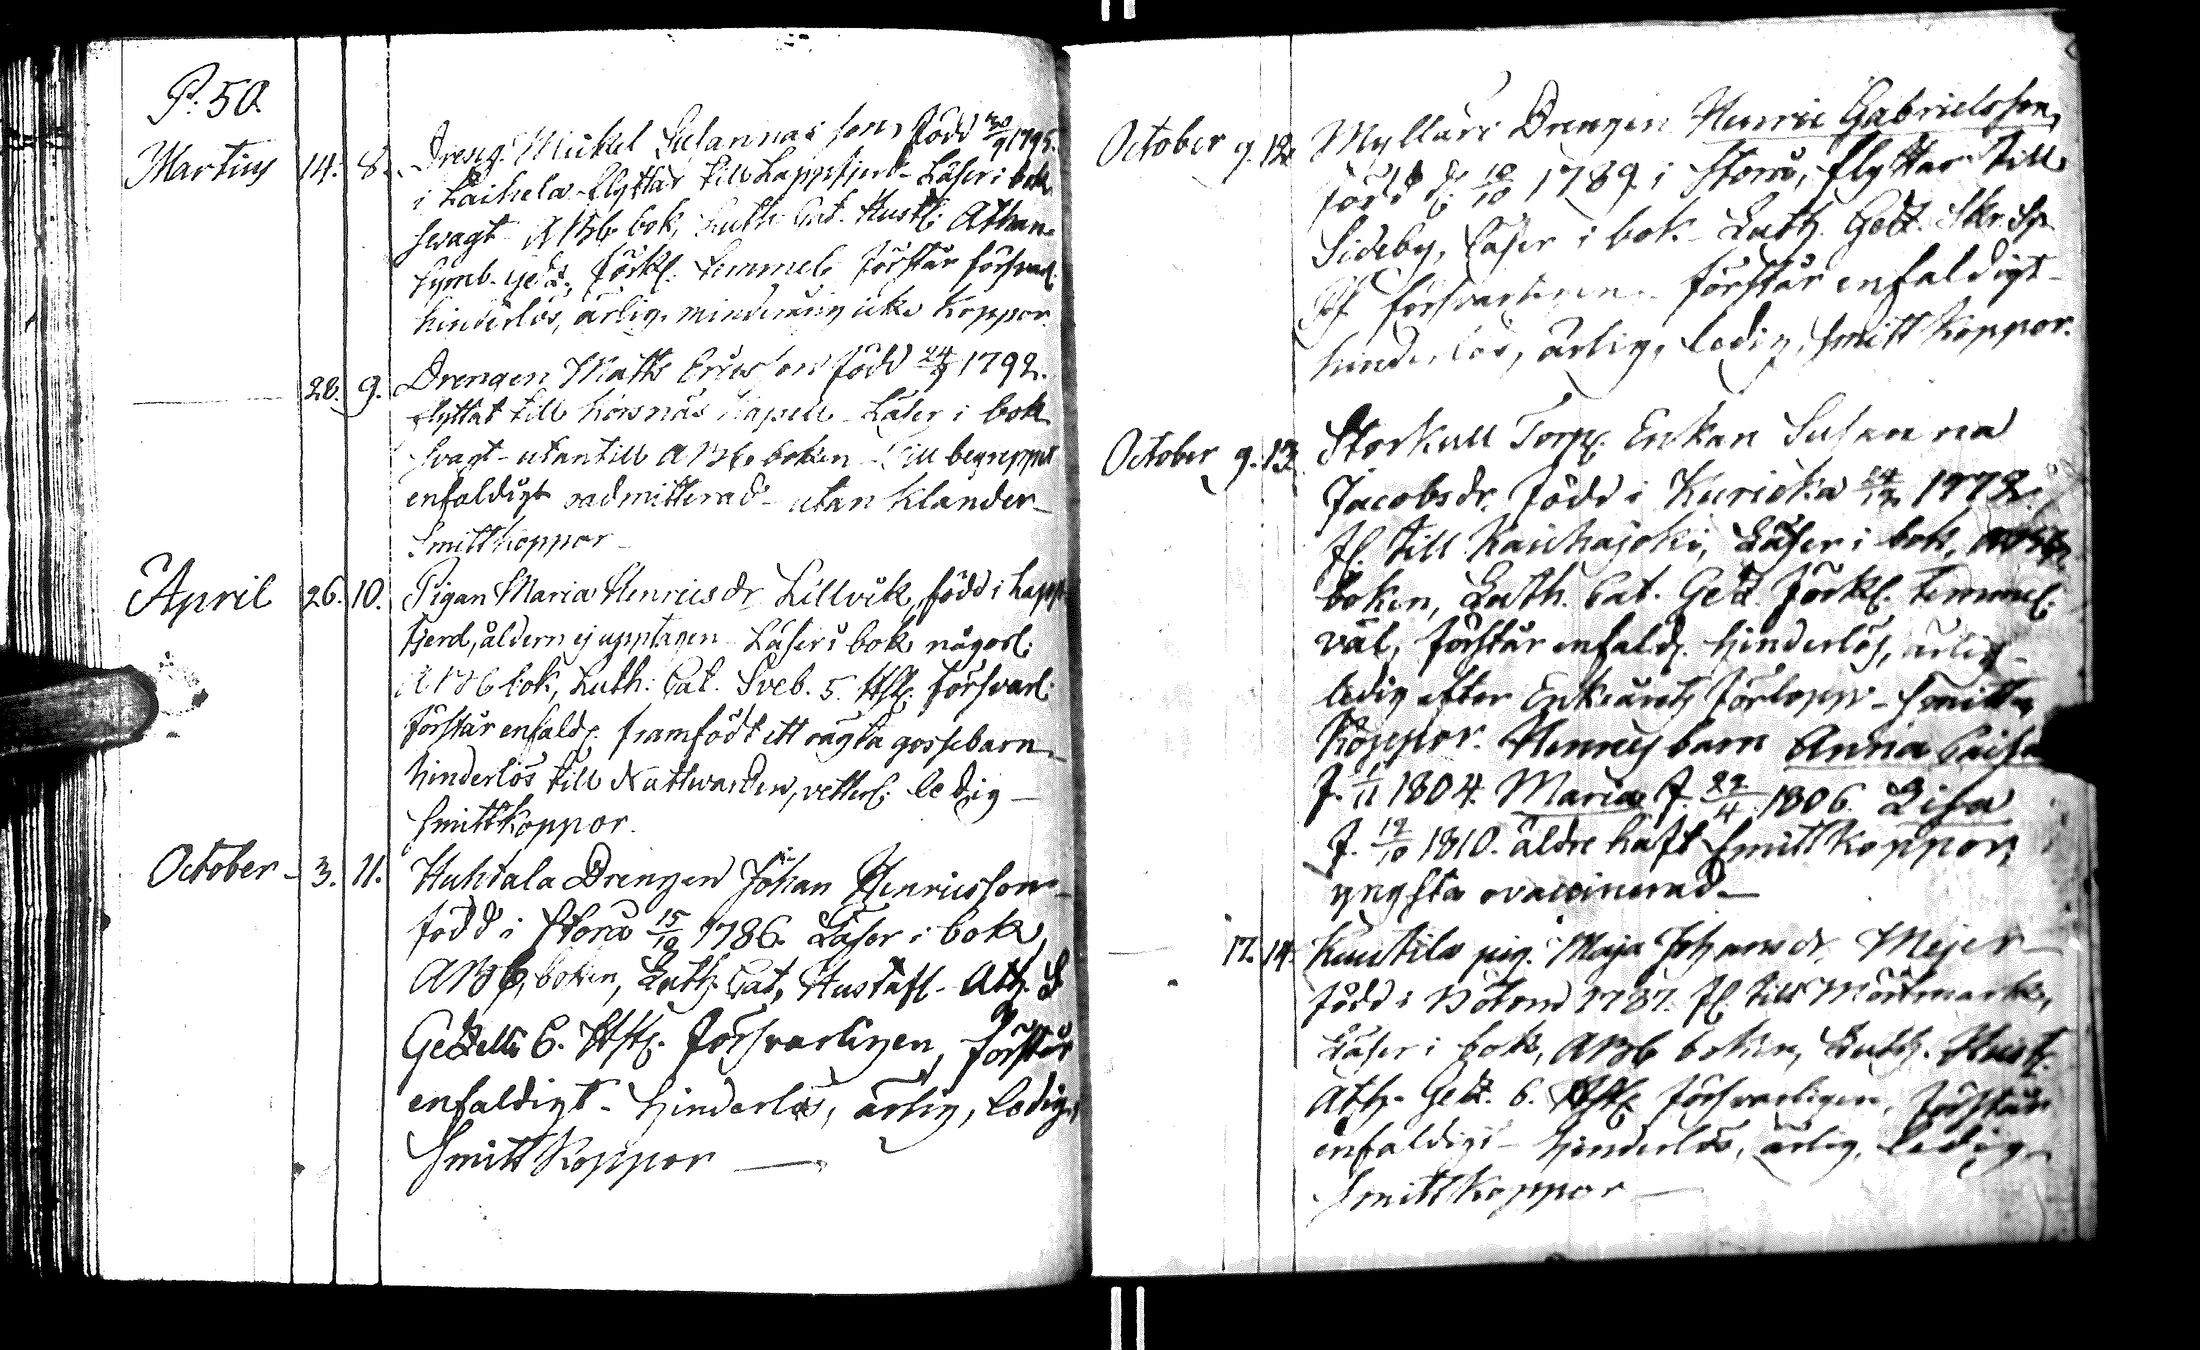 P. 50.
Martius 14. 8. Dreng. Mickel Susannas son, född 30/9 1795.
i Laihela flyttar till Lappfjerd - Läser i bok
svagt - ABC bok, Luth. Cat. Hustl: Athan.
Symb. Förkl. timmel. förstår försvarl.
hinderlös, ärlig, minderårig icke Koppor.
28. 9. Drengen Matts Ericsson född 24/9 1792.
flyttat till Korsnäs Kapell - Läser i bok
svagt - utantill ABC boken - till begreppet
enfaldigt admitterad - utan Klander -
Smittkoppor -
April 26. 10. Pigan Maria Henricsdr Lillvik, född i Lapp-
fjerd, åldern ej upptagen - Läser i bok någorl:
ABC bok, Luth: Cat. Sveb. 5. Hst. försvarl:
förstår enfald. framfödt ett oägta gossebarn -
hinderlös till Nattvarden, vetterl: ledig -
Smittkoppor.
October - 3. 11. Huhtala Drengen Johan Henricsson -
född i Storå 15/12 1786. Läser i bok,
ABC, boken, Luth. Cat, Hustafl - Ath. S
Getzelii 6. Hst. försvarligen, förstår
enfaldigt - hinderlös, ärlig, ledig,
Smitt Koppor -
October 9. 12. Mylläri Drengen Henric Gabrielsson,
född d: 12/10 1789 i Storå, flyttar till
Sideby, läser i bok - Luth. Getz. Skr. Sp.
försvarligen - förstår enfaldigt -
hinderlös, ärlig, ledig, smitt Koppor.
October 9. 13. Storkull Torp. Enkan Susanna
Jacobsdr. född i Kuricka 24/12 1772.
fl. till Kauhajoki, Läser i bok, ABC
boken, Luth. Cat. Getz. Förkl. timmel.
väl, förstår enfald. hinderlös, ärlig -
ledig efter Enkeårets förlopp - smitt
Koppor. Hennes barn Anna Caisa
f. 1/11 1804. Maria f. 22/4 1806. Lisa
f. 12/10 1810. äldre haft Smittkoppor,
yngsta ovaccinerad -
17. 14. Kuutila pig. Maja Johansdr. Mejer -
född i Bötom 1787. fl. till Mörtmark,
Läser i bok, ABC boken, Luth. Hust.
Ath. Getz. 6. Hst. försvarligen, förstår
enfaldigt - hinderlös, ärlig, ledig -
Smittkoppor -